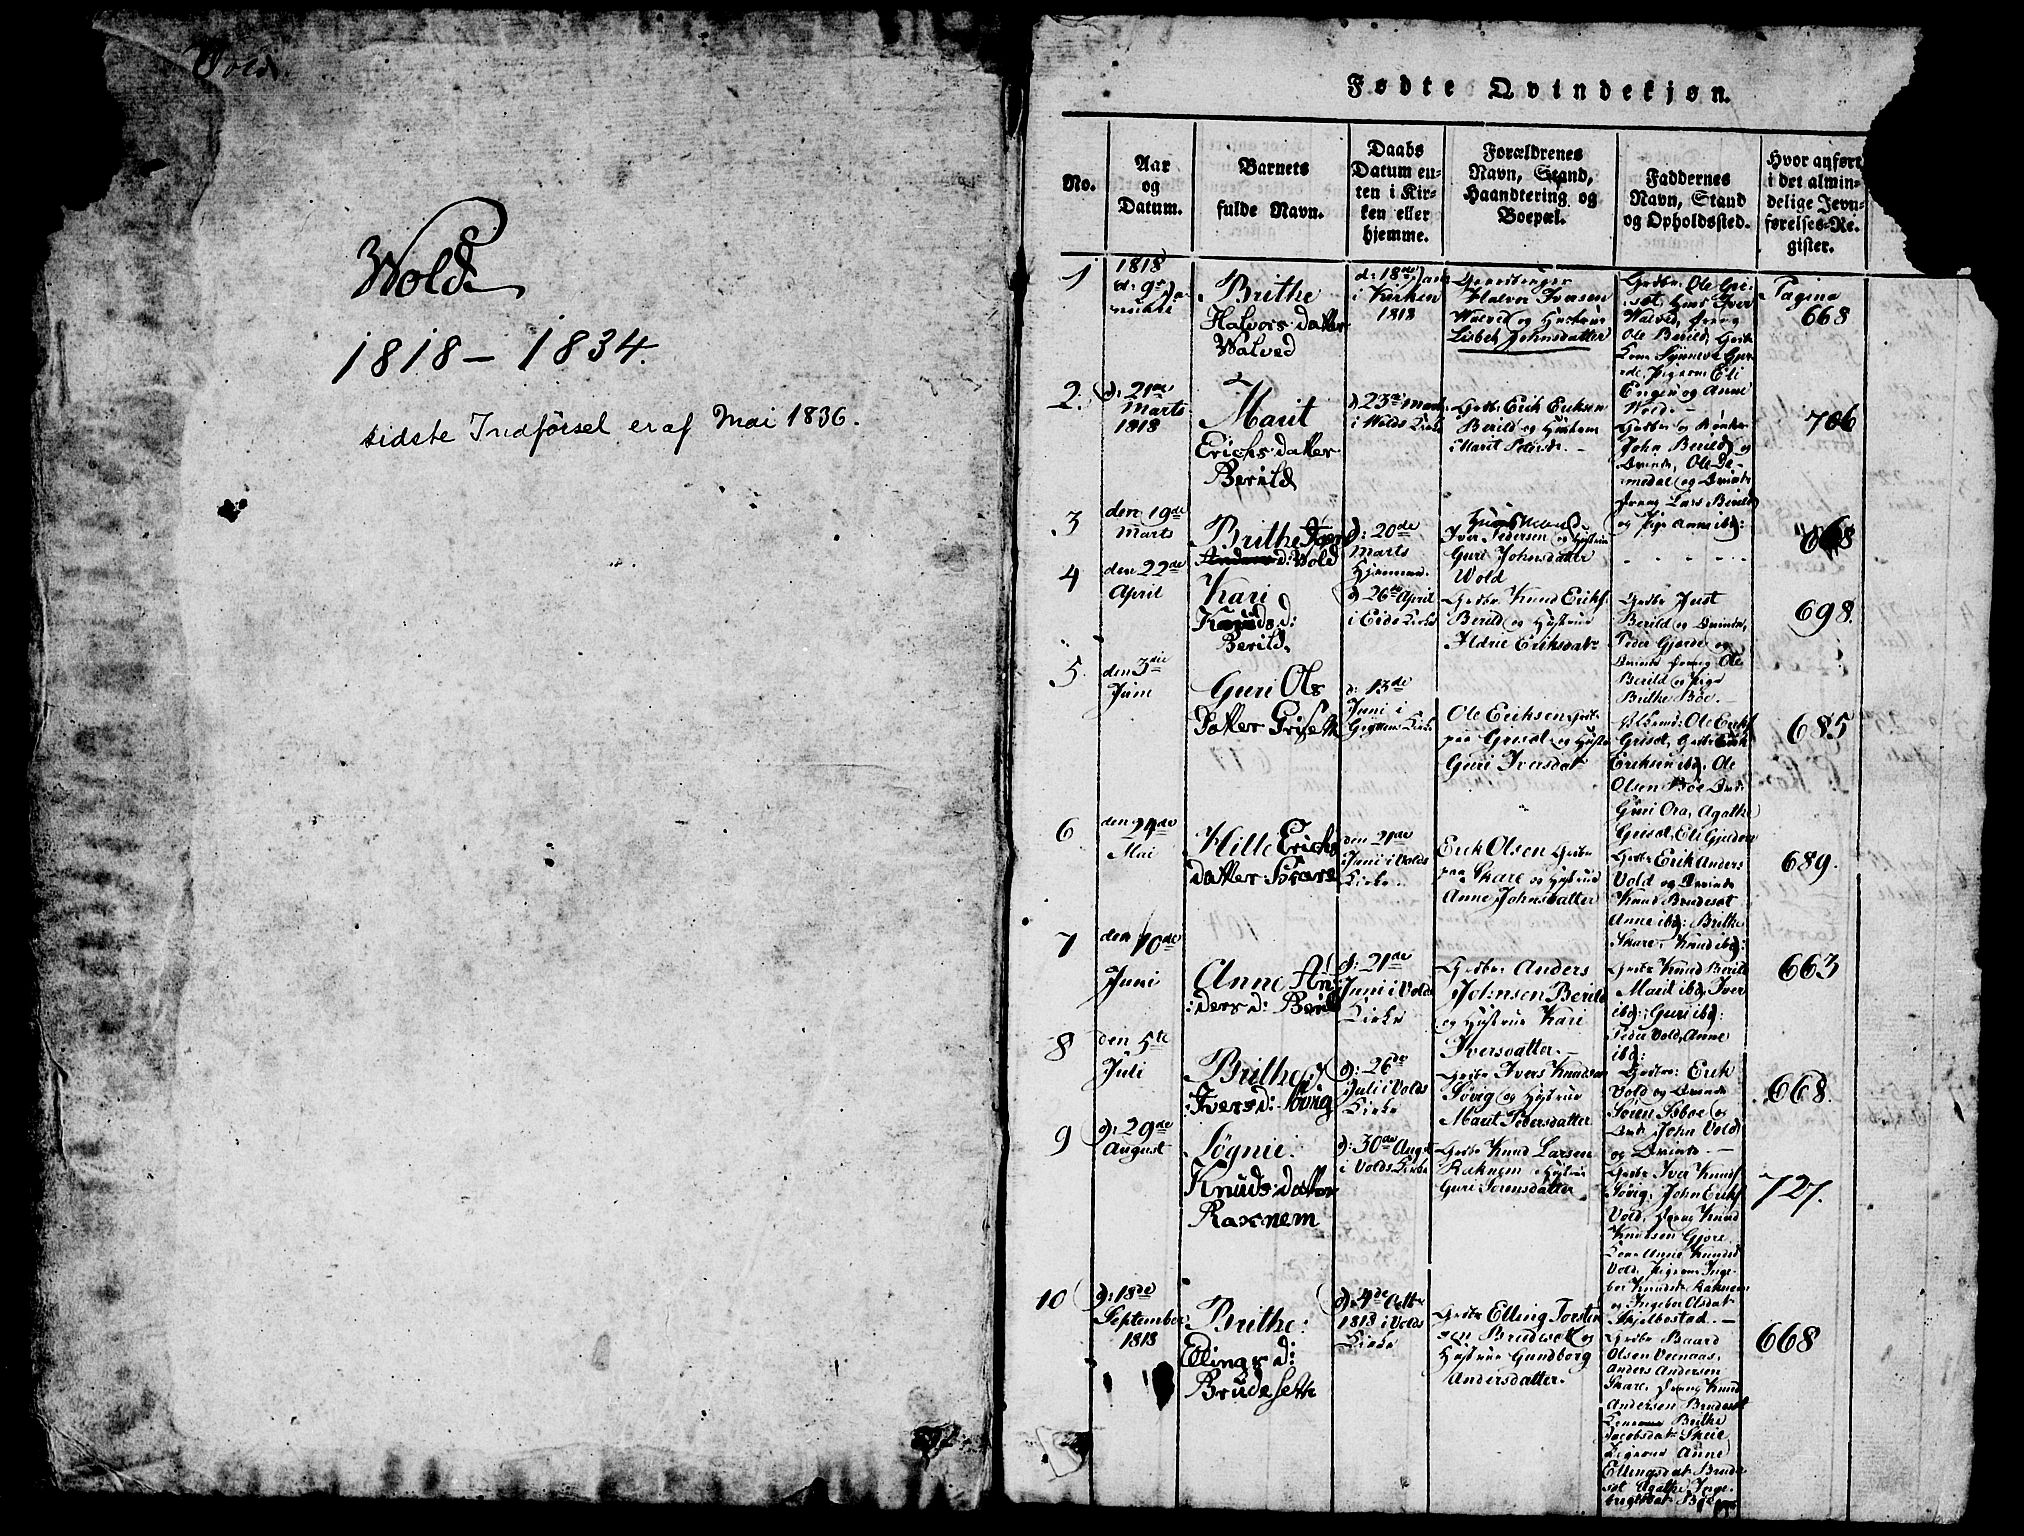 Wold
1818 – 1834.
sidste Indførsel er af Mai 1836.
Fødte Qvindekjøn.
No.
Aar
og
Datum.
Barnets
fulde Navn.
Daabs
Datum en-
ten i Kir-
ken eller
hjemme.
Forældrenes
Navn, Stand,
Haandtering og
Boepæl.
Faddernes
Navn, Stand
og Opholdssted.
Hvor anført
i det almin-
delige Jevn-
førelses-Re-
gister.
1
1818
d: 9de
Brithe
Halvors datter
Walved
d: 18de
i Kirken
1818
Halvor Iversen
Walved og Hustrue
Lisbeth Johnsdatter
Pagina
668
2.
d: 21de
Marts
1818
Marit
Erichs datter
Berild
d 23de Marts
i Wolds Kirke
Grdbr Erik Eriksen
Berild og Hustrue
Marit
Engen og Anne
Wold. –
John Berild og
Qvinde, Ole De-
medal og Qvinde
dreng Lars Berild
og Pige Anne ibd:
706
3
den 19de
Marts
Brithe
d: Wold
d: 20de
Marts
Hjemme
Huusmand
Iver Pedersen og Hustrue
Guri Johnsdatter
Wold
668
4
den 22de
April
Kari
Knuds d:
Berild.
d 26de April
i Eids Kirke
Grdbr Knud Eriks
Berild og Hustrue
Ildrie Eriksdatr
Berild og Qvinde,
Peder Gjerde og
Qvinde dreng Ole
Berild og Pige
Brithe Bøe.
698.
5
den 3die
Juni
Guri Ols
Datter Griseth
d: 13de
Juni i
Kirke
Ole Eriksen
paa Griset og Hustru
Guri Iversdatr
Griset,
Eriksen ibd, Ole
Olsen Bøe
Guri Ora, Agathe
Griset, Eli Gjerden
685
6
den 24de
Mai
Mille Erichs
datter Skare
den 21de
Juni i Volds
Kirke.
Erik Olsen Grdbr
paa Skare og Hustrue
Anne Johnsdatter
Grdbr Erik Anders
Vold og Qvinde
Knud Brudeset
Anne ibd: Brithe
Skare, Knud ibd:
689.
7
den 10de
Juni
Anne An-
ders d: Berild
d: 21de
Juni i Volds
Kirke
Grdbr Anders
Johnsen Berild
og Hustrue Kari
Iversdatter. –
Grdbr Knud Berild
Marit ibd, Iver
ibd: Guri ibd:
Peder Vold, Anne
ibd:
663
8
den 5te
Juli
Brithe
Ivers d: Søvig
d: 26de
Juli i Volds
Kirke
Grdbr Ivers Knudsen
Søvig og Hustrue
Marit Pedersdatter
Grdbr: Erik
Vold og Qvinde
John Vold
og Qvinde –
668.
9
d: 29de
August
Søgnie.
Knuds datter
Raxnem
d: 30de Aug
i Volds Kirke
Grdbr Knud Larsen
Raknem og Hustrue
Guri Sørensdatter
Grdbr Iver Knuds
Søvig, John Eriks
Vold, dreng Knud
Knutsen Gjøre
Kone Anne Knuds
Vold, Pigerne Inge-
bor Knudsdr Raknem
og Ingebor Olsdatr
Skjelbostad. –
727.
10
d: 18de
September
1818
Brithe:
Ellings d:
Brudeseth
d: 4de Octbr
1818 i Volds
Kirke
Grdbr Elling Torste
sen Brudeset og
Hustrue Gundborg
Andersdatter.
Grdbr Baard
Olsen Vernaas,
Anders Andersen
Skare, dreng Knud
Andersen Brudeset
Konerne Brithe
Jacobsdatr Skeie
Pigerne Anne
Ellingsdatr Brude
set Agathe Inge-
668